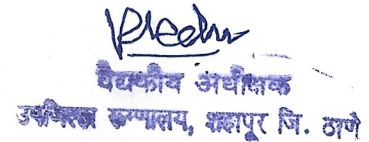 वैद्यकीय अधीक्षक
उपजिल्हा रुग्णालय, शहापूर जि. ठाणे